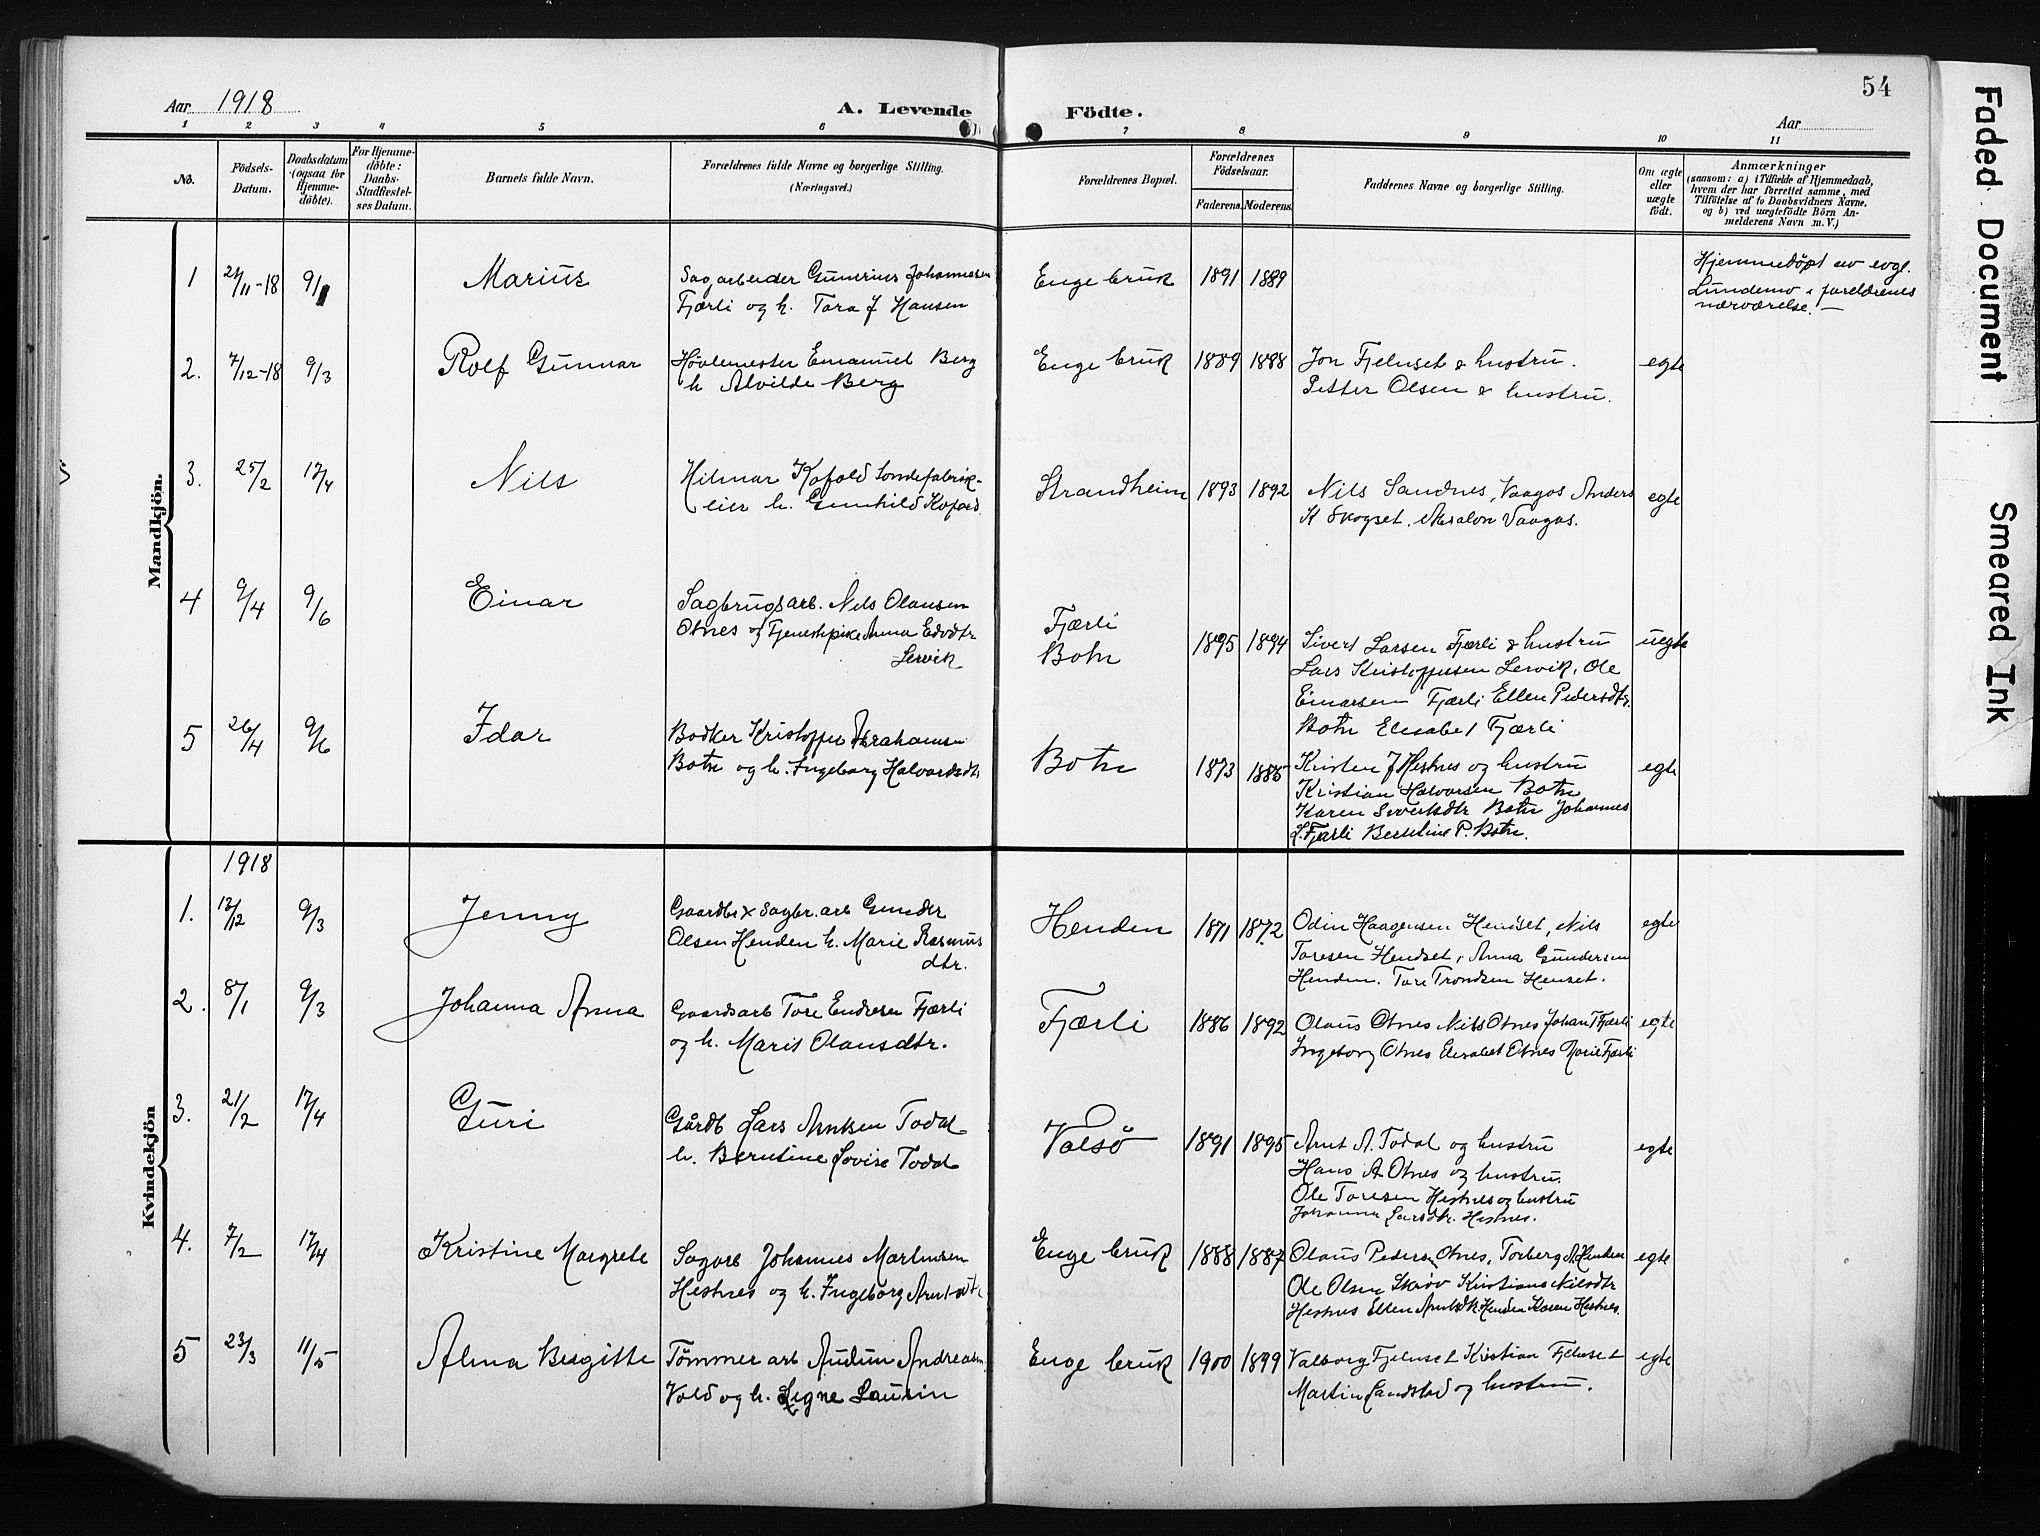 54
Aar 1918
A. Levende
Födte.
Aar
1 2 3 4 5 6 7 8 9 10 11
No.
Födsels-
Datum.
Daabsdatum
(ogsaa for
Hjemme-
döbte).
For Hjemme-
döbte:
Daabs-
Stadfæstel-
ses Datum.
Barnets fulde Navn.
Forældrenes fulde Navne og borgerlige Stilling.
(Næringsvei.)
Forældrenes Bopæl.
Forældrenes
Födselsaar.
Faderens. Moderens.
Faddernes Navne og borgerlige Stilling.
Om ægte
eller
uægte
födt.
Anmærkninger
(saasom: a) i Tilfælde af Hjemmedaab,
hvem der har forrettet samme, med
Tilföielse af to Daabsvidners Navne,
og b) ved uægtefödte Börn An-
melderens Navn m. V.)
Mandkjön.
1 24/11-18 9/ Marius
Sagarbeider Gunerius Johannesen
Fjærli og h. Tora J Hansen
Enge bruk 1891 1889
Hjemmedöpt av evgl.
Lundemo i foreldrenes
nærværelse.—
2. 7/12-18 9/3 Rolf Gunnar
Hövlemester Emanuel Berg
h Alvilde Berg
Enge bruk 1889 1888
Jon Fjelnset & hustru.
Petter Olsen & hustru.
egte
3. 25/2 17/4 Nils
Hilmar Kofold
eier h. Gunhild Kofoed
Strandheim 1893 1892
Nils Sandnes, Vaagos Anders
K Skogset. Absalon Vaagos.
egte
4 9/4 9/6 Einar
Sagbrugsarb. Nils Olausen
Otnes og Tjenestepike Anna Edvdtr
Lervik
Fjærli
Botn
1895 1894
Sivert Larsen Fjærli & hustru
Lars Kristoffersen Lervik. Ole
Einarsen Fjærli Ellen Pedersdtr.
Botn Elisabet Fjærli
uegte
5 26/4 9/6 Idar
Bödker Kristoffer Abrahamsen
Botn og h. Ingeborg Halvordsdtr
Botn 1873 1885
Kristen J Hestnes og hustru
Kristian Halvorsen Botn
Karen Sivertsdtr Botn Johannes
L. Fjærli Berntine P. Botn.
egte
Kvindekjön
1918
1. 13/12 9/3 Jenny
Gaardbr & Sagbr. arb Gunder
Olsen Henden h. Marie Rasmus
dtr.
Henden 1871 1872
Odin Haagensen Hendset, Nils
Toresen Hendset, Anna Gundersen
Henden. Tore Trondsen Henset.
egte
2. 8/1 9/3 Johanna Anna
Gaardsarb Tore Endresen Fjærli
og h. Marit Olausdtr.
Fjærli 1886 1892
Olaus Otnes Nils Otnes Johan T Fjærli
Ingeborg Otnes Elisabet Otnes Marie Fjærli
egte
3. 21/2 17/4 Guri
Gårdb Lars Arntsen Todal
h. Berntine Lovise Todal
Valsö 1891 1895
Arnt A. Todal og hustru
Hans A Otnes og hustru.
Ole Toresen Hestnes og hustru
Johanna Larsdtr. Hestnes.
egte
4. 7/2 17/4 Kristine Margrete
Sagarb Johannes Martinsen
Hestnes og h. Ingeborg Arntsdtr
Enge bruk 1888 1887
Olaus Pedersen Otnes, Torberg A Henden
Ole Olsen Skröv Kristiane Nilsdtr
Hestnes Ellen Arntsdtr Henden Karen Hestnes.
egte
5 23/3 11/5 Alma Birgitte
Tömmer arb Audun Andreasen
Vold og h. Signe Laurin
Enge bruk 1900 1899
Valborg Fjelnset Kristian Fjelnset
Martin Landstad og hustru.
egte
Faded Document
Smeared Ink